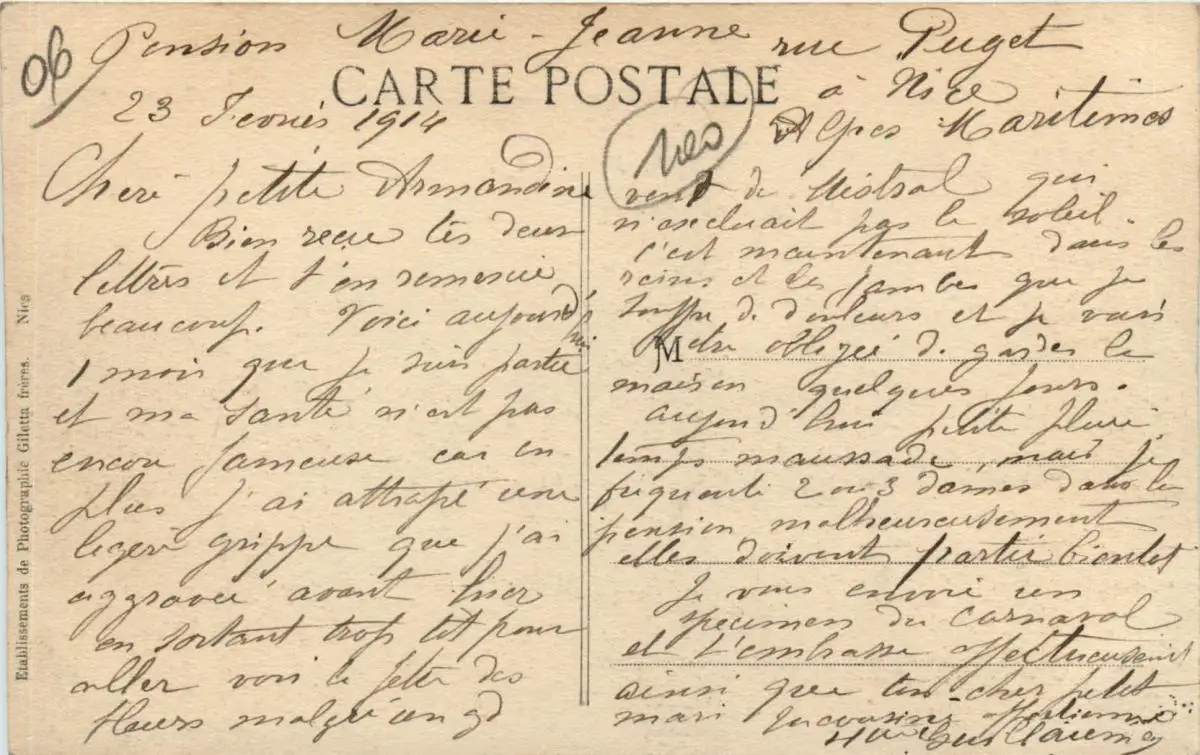 06
Pension Marie-Jeanne rue Puget
CARTE POSTALE
à Nice
23 Février 1914
Alpes Maritimes
Chere petite Armandine
Bien reçue tes deux
lettres et t'en remercie
beaucoup. Voici aujourd'hui
1 mois que je suis partie
et ma santé n'est pas
encore fameuse car en
plus j'ai attrapé une
legère grippe que j'ai
aggravée avant hier
en sortant trop tôt pour
aller voir la fête des
fleurs malgré un gd
vent de Mistral qui
n'excluait pas le soleil.
c'est maintenant dans les
reins et les jambes que je
souffre de douleurs et je vais
M
être obligée de garder la
maison quelques jours.
aujourd'hui petite pluie
temps maussade, mais je
fréquente 2 ou 3 dames dans la
pension malheureusement
elles doivent partir bientot
Je vous envoie un
specimen du carnaval
et t'embrasse affectueusement
ainsi que ton cher petit
mari
Guillaume
Etablissements de Photographie Giletta frères. Nice